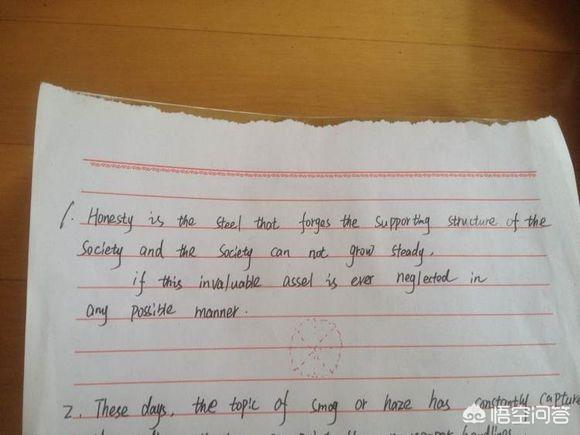 1. Honesty is the steel that forges the supporting structure of the
Society and the Society can not grow steady,
if this invaluable assel is ever neglected in
any possible manner.
2. These days, the topic of smog or haze has constantly capture
悟空问答